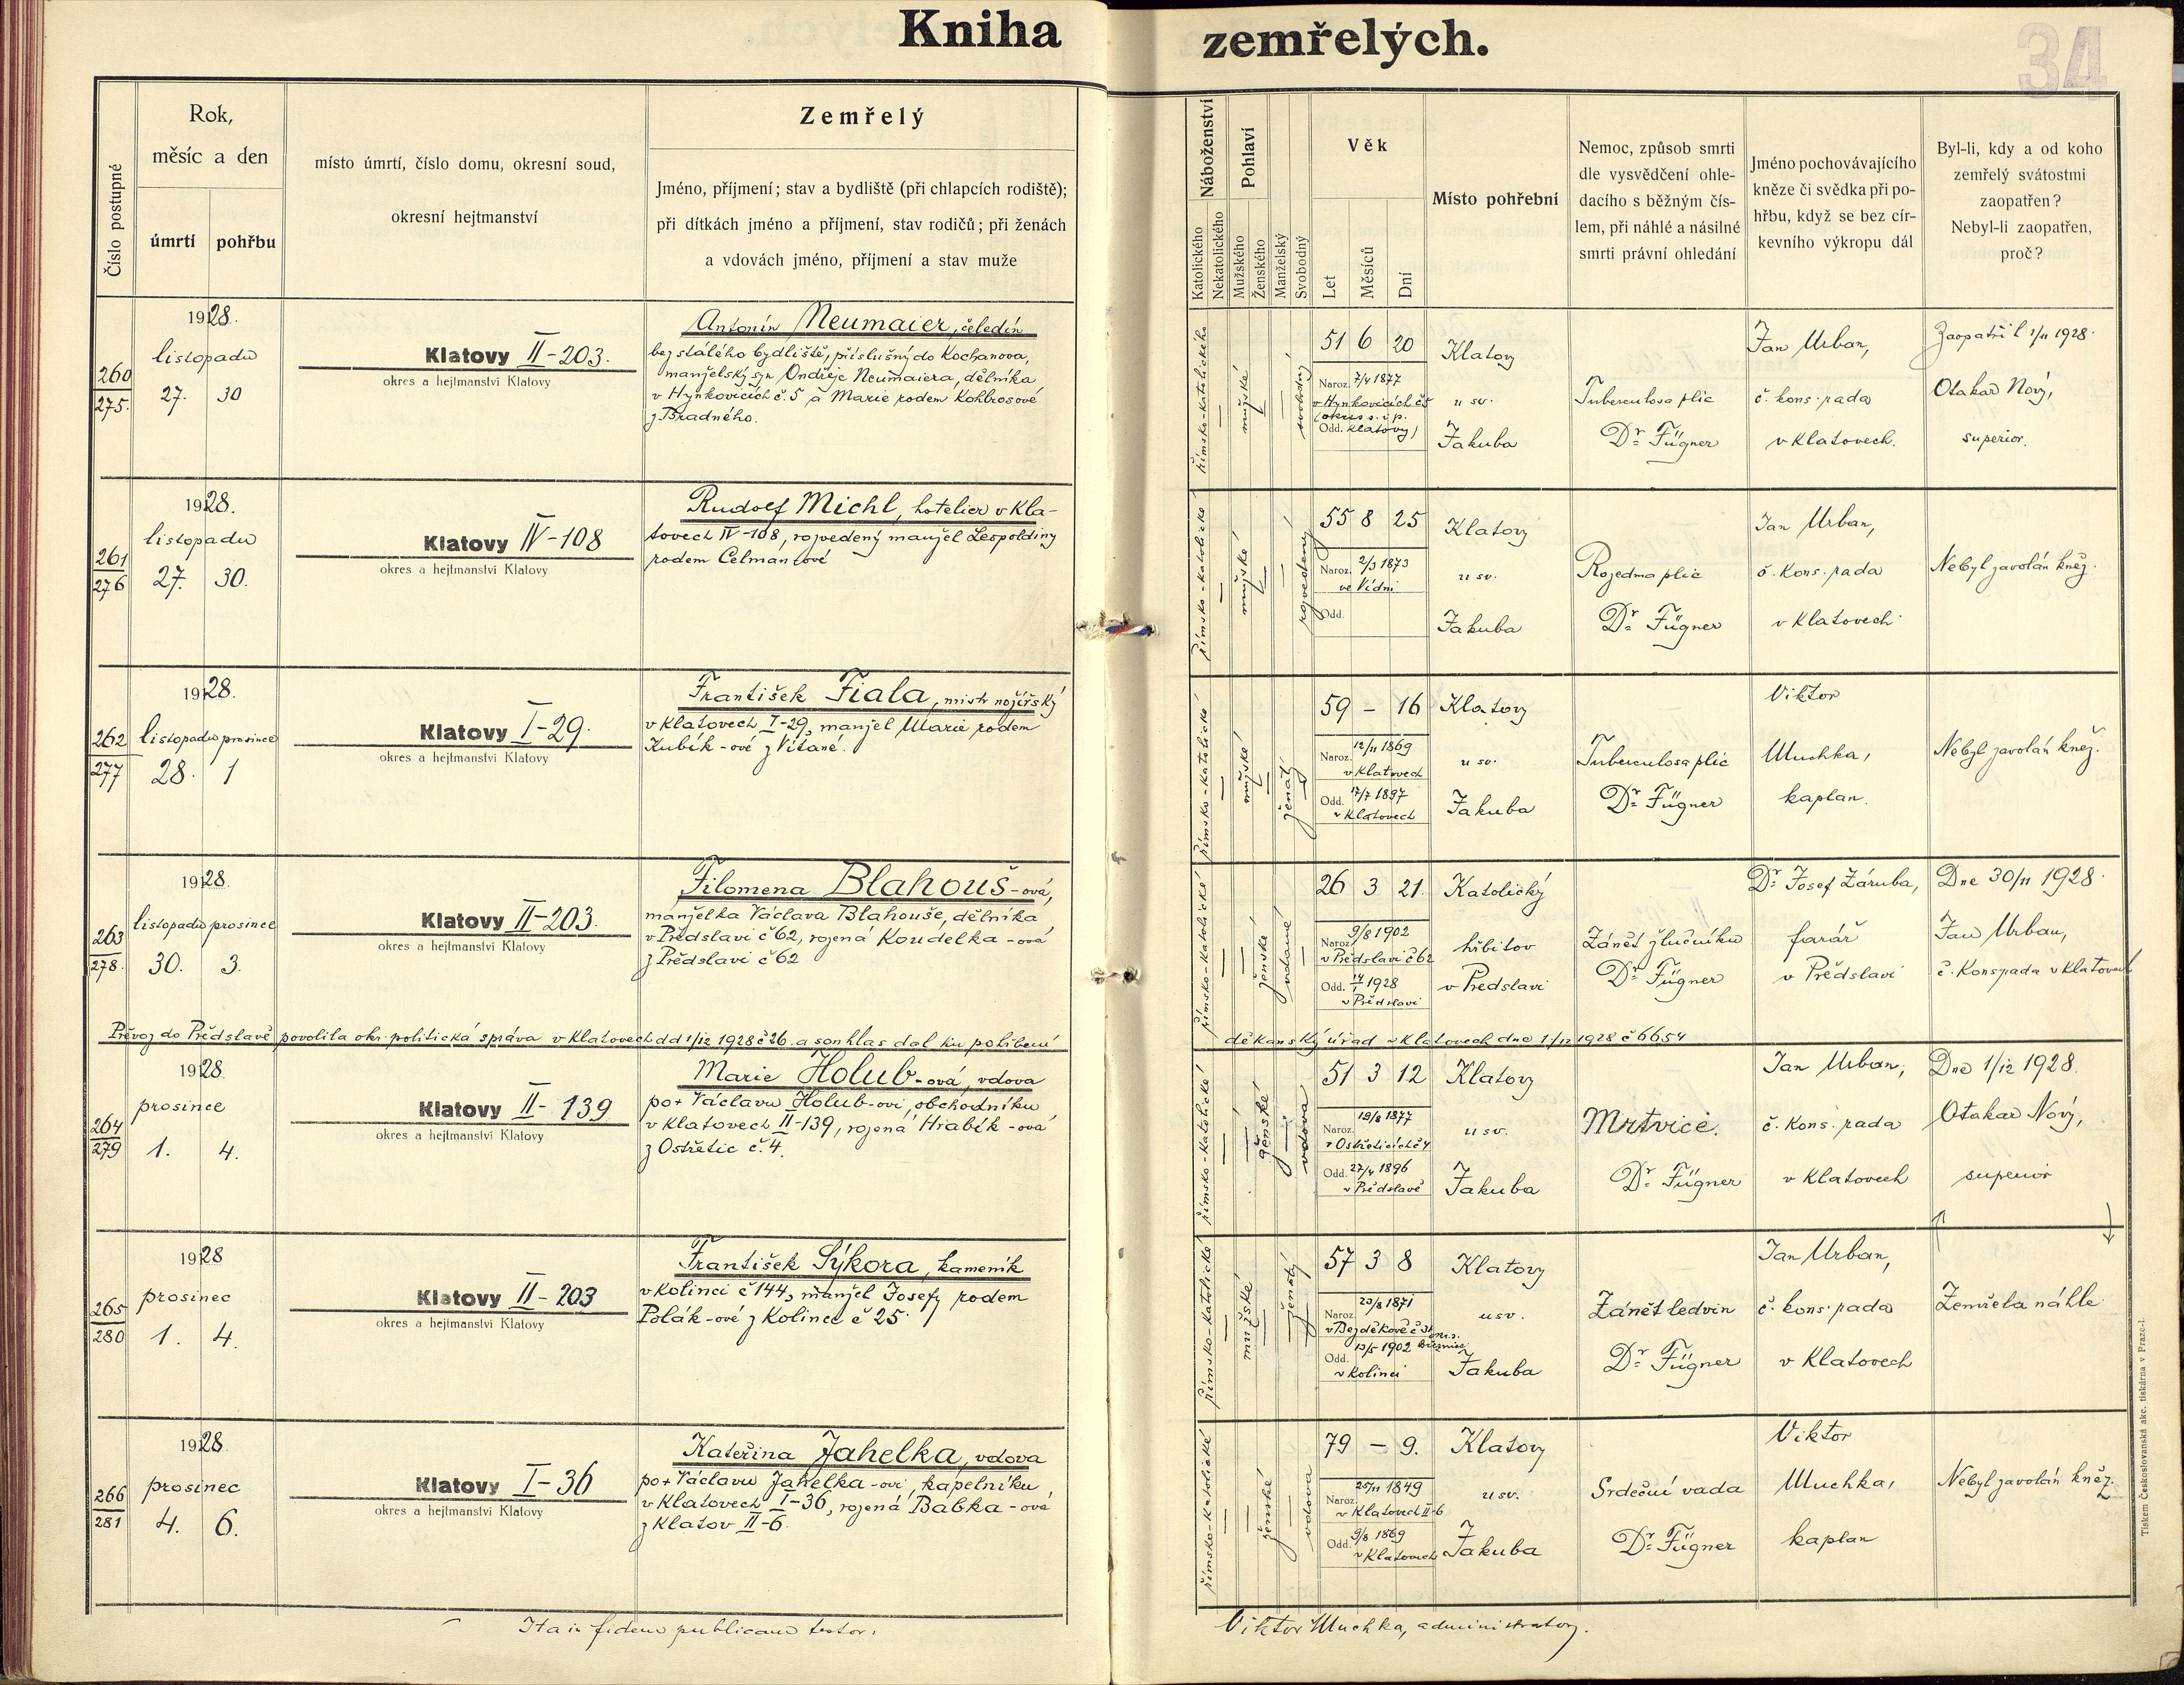 Kniha zemřelých.
34
Číslo postupné
Rok,
měsíc a den
úmrtí
pohřbu
místo úmrtí, číslo domu, okresní soud,
okresní hejtmanství
Zemřelý
Jméno, příjmení; stav a bydliště (při chlapcích rodiště);
při dítkách jméno a příjmení, stav rodičů; při ženách
a vdovách jméno, příjmení a stav muže
Náboženství
Katolického
Nekatolického
Pohlaví
Mužského
Ženského
Manželský
Svobodný
Věk
Let
Měsíců
Dní
Místo pohřební
Nemoc, způsob smrti
dle vysvědčení ohle-
dacího s běžným čís-
lem, při náhlé a násilné
smrti právní ohledání
Jméno pochovávajícího
kněze či svědka při po-
hřbu, když se bez cír-
kevního výkropu dál
Byl-li, kdy a od koho
zemřelý svátostmi
zaopatřen?
Nebyl-li zaopatřen,
proč?
260
275.
1928.
listopadu
27. 30
Klatovy II-203.
okres a hejtmanství Klatovy
Antonín Neumaier, čeledín
bez stálého bydliště, příslušný do Kochanova,
manželský syn Ondřeje Neumaiera, dělníka
v Hynkovicích č. 5 a Marie rodem Kohlrosové
z Bradného.
římsko-katolického
mužské
svobodný
51 6 20
Naroz. 7/4 1877
v Hynkovicích č5
(okres s. i p.
Odd. Klatovy)
Klatovy
u sv.
Jakuba
Tuberculosa plic
Dr. Fügner
Jan Urban,
č. kons. rada
v Klatovech.
Zaopatřil 1/11 1928.
Otakar Nový,
superior.
261
276
1928.
listopadu
27. 30.
Klatovy IV-108
okres a hejtmanství Klatovy
Rudolf Michl, hotelier v Kla-
tovech IV-108, rozvedený manžel Leopoldiny
rodem Celmanové
římsko-katolické
mužské
rozvedený
55 8 25
Naroz. 2/3 1873
ve Vídni
Odd.
Klatovy
u sv.
Jakuba
Rozedma plic
Dr. Fügner
Jan Urban,
č. kons. rada
v Klatovech.
Nebyl zavolán kněz.
262
277
1928.
listopadu prosince
28. 1
Klatovy I-29.
okres a hejtmanství Klatovy
František Fiala, mistr nožířský
v Klatovech I-29, manžel Marie rodem
Kubík-ové z Vítané.
římsko-katolické
mužské
ženatý
59 - 16
Naroz. 12/11 1869
v Klatovech
Odd. 17/7 1897
v Klatovech
Klatovy
u sv.
Jakuba
Tuberculosa plic
Dr. Fügner
Viktor
Muchka,
kaplan.
Nebyl zavolán kněz.
263
278.
1928.
listopadu prosince
30. 3.
Klatovy II-203.
okres a hejtmanství Klatovy
Filomena Blahouš-ová,
manželka Václava Blahouše, dělníka
v Předslavi č 62, rozená Koudelka-ová
z Předslavi č 62
římsko-katolické
ženské
vdané
26 3 21.
Naroz. 9/8 1902
v Předslavi č62
Odd. 14/1 1928
v Předslavi
Katolický
hřbitov
v Předslavi
Zánět žlučníku
Dr. Fügner
Dr. Josef Záruba,
farář
v Předslavi
Dne 30/11 1928.
Jan Urban,
č. Kons rada v Klatovech
Převoz do Předslavě povolila okr. politická správa v Klatovech dd 1/12 1928 č 26. a souhlas dal ku pohřbení děkanský úřad v Klatovech dne 1/12 1928 č 6654
264
279
1928.
prosince
1. 4.
Klatovy II-139
okres a hejtmanství Klatovy
Marie Holub-ová, vdova
po + Václavu Holub-ovi, obchodníku
v Klatovech II-139, rozená Hrabík-ová
z Ostřetic č. 4.
římsko-katolické
ženské
vdova
51 3 12
Naroz. 19/8 1877
v Ostřeticích č 4
Odd. 27/4 1896
v Předslavě
Klatovy
u sv.
Jakuba
Mrtvice.
Dr. Fügner
Jan Urban,
č. kons. rada
v Klatovech
Dne 1/12 1928.
Otakar Nový,
superior
265
280
1928
prosinec
1. 4.
Klatovy II-203
okres a hejtmanství Klatovy
František Sýkora, kameník
v Kolinci č 144, manžel Josefy rodem
Polák-ové z Kolince č 25.
římsko-katolické
mužské
ženatý
57 3 8
Naroz. 23/8 1871
v Bezděkově č 31
Odd. 13/5 1902
v Kolinci
Klatovy
u sv.
Jakuba
Zánět ledvin
Dr. Fügner
Jan Urban,
č. kons. rada
v Klatovech
Zemřela náhle.
266
281
1928.
prosinec
4. 6.
Klatovy I-36
okres a hejtmanství Klatovy
Kateřina Jahelka, vdova
po + Václavu Jahelka-ovi, kapelníku
v Klatovech I-36, rozená Babka-ová
z Klatov II-6.
římsko-katolické
ženské
vdova
79 - 9.
Naroz. 25/11 1849
v Klatovech II-6
Odd. 9/8 1869
v Klatovech
Klatovy
u sv.
Jakuba
Srdeční vada
Dr. Fügner
Viktor
Muchka,
kaplan
Nebyl zavolán kněz.
Ita in fidem publicam testor:
Viktor Muchka, administrator.
Tiskem Československá akc. tiskárna v Praze-I.